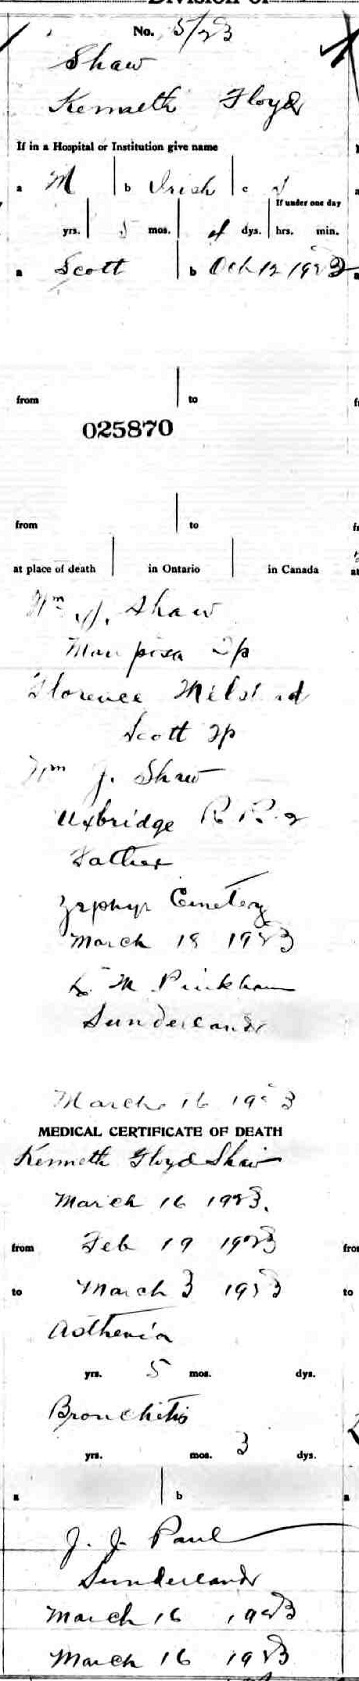 Division of
No. 5/23
Shaw
Kenneth Floyd
If in a Hospital or Institution give name
a M b Irish c S
If under one day
yrs. 5 mos. 4 dys. hrs. min.
a Scott b Oct 12 1923
from to
025870
from to
at place of death in Ontario in Canada
Wm J. Shaw
Mariposa Tp
Florence
Scott Tp
Wm J. Shaw
Uxbridge R. R. 2
Father
Zephyr Cemetery
March 18 1923
L. M. Pinkham
Sunderland
March 16 1923
MEDICAL CERTIFICATE OF DEATH
Kenneth Floyd Shaw
March 16 1923.
from Feb 19 1923
to March 3 1923
Asthenia
yrs. 5 mos. dys.
Bronchitis
yrs. mos. 3 dys.
a b
J. J. Paul
Sunderland
March 16 1923
March 16 1923